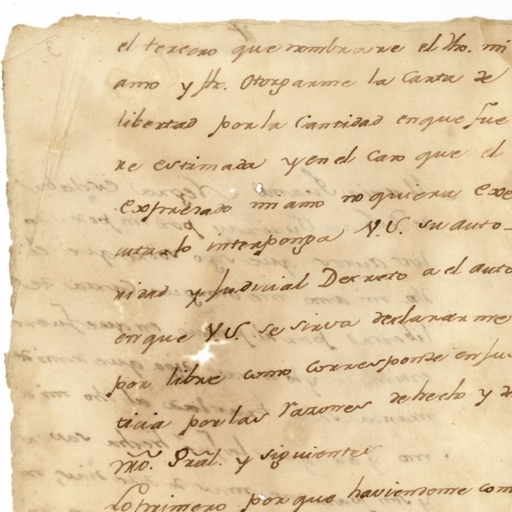 el tercero que nombrare el dho. mi
amo y Sr. Otorgarme la Carta de
libertad por la Cantidad en que fue
re estimada y en el caso que el
expresado mi amo no quiera exe
cutarlo interponga V.S. su auto-
ridad y Judicial Decreto a el auto
en que V.S. se sirva declararme
por libre como corresponde en jus
ticia por las razones de hecho y de
dro. Gral. y siguientes
Lo primero por que haviendome com